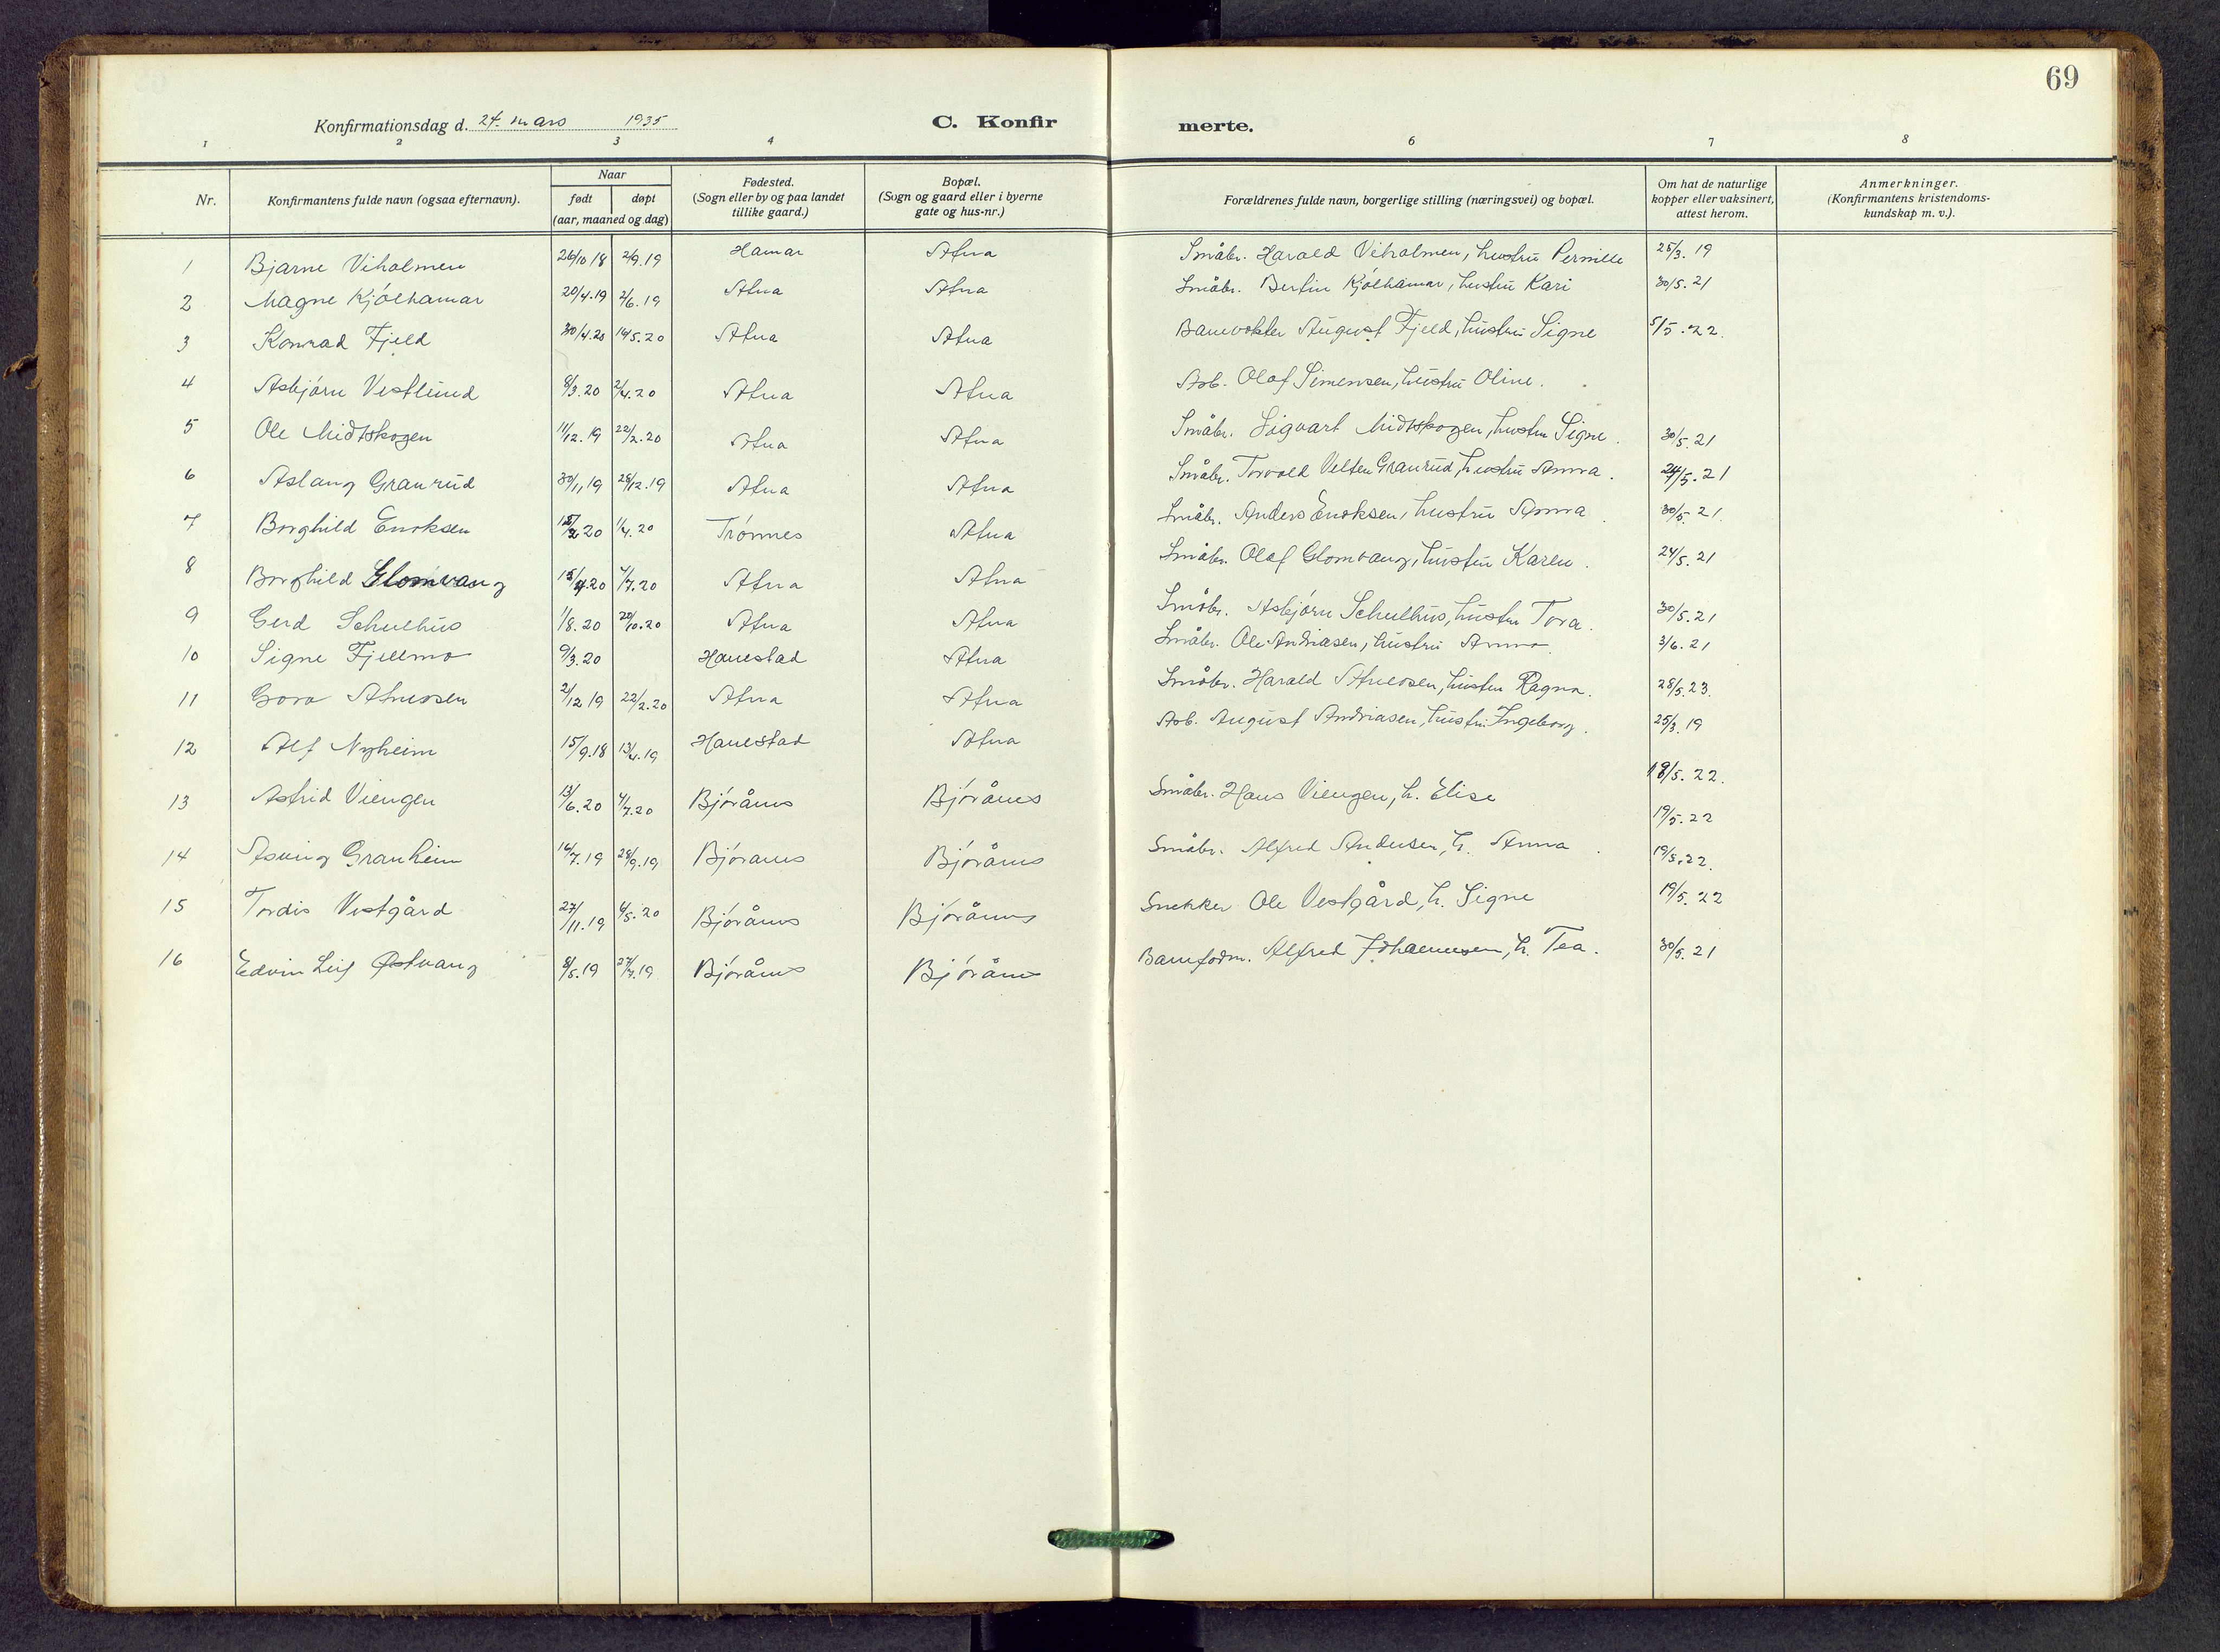 69
Konfirmationsdag d. 24. mars 1935
C. Konfir merte.
1 2 3 4 6 7 8
Nr. Konfirmantens fulde navn (ogsaa efternavn). Naar født døpt (aar, maaned og dag) Fødested. (Sogn eller by og paa landet tillike gaard.) Bopæl. (Sogn og gaard eller i byerne gate og hus-nr.) Forældrenes fulde navn, borgerlige stilling (næringsvei) og bopæl. Om hat de naturlige kopper eller vaksinert, attest herom. Anmerkninger. (Konfirmantens kristendoms-kundskap m. v.).
1 Bjarne Viholmen 26/10 18 2/9.19 Hamar Atna Småbr. Harald Viholmen, hustru Pernille 25/3. 19
2 Magne Kjølhamar 20/4.19 2/6.19 Atna Atna Småbr. Bertin Kjølhamar, hustru Kari 30/5.21
3 Konrad Fjeld 30/4.20 14/5.20 Atna Atna Banevokter August Fjeld, hustru Signe 5/5.22.
4 Asbjørn Vestlund 8/3.20 2/4.20 Atna Atna Arb. Olaf Simensen, hustru Oline.
5 Ole Midtskogen 11/12.19 22/2.20 Atna Atna Småbr. Sigvart Midtskogen, hustru Signe. 30/5.21
6 Aslaug Granrud 30/11 19 28/12.19 Atna Atna Småbr. Torvald Velten Granrud, hustru Anna. 24/5.21
7 Borghild Enoksen 20 1/4.20 Trønnes Atna Småbr. Anders Enoksen, hustru Anna. 30/5.21.
8 Borghild Glomvang 15/4.20 4/7.20 Atna Atna Småbr. Olaf Glomvang, hustru Karen. 24/5.21
9 Gerd Schulhus 1/8.20 20/10.20 Atna Atna Småbr. Asbjørn Schulhus, hustru Tora. 30/5.21
10 Signe Fjellmo 9/3.20 Hanestad Atna Småbr. Ole Andriasen, hustru Anna. 3/6.21
11 Gora Atneosen 2/12 19 22/2.20 Atna Atna Småbr. Harald Atneosen, hustru Ragna. 28/5.23.
12 Alf Nyheim 15/9.18 13/4.19 Hanestad Atna Arb. August Andriasen, hustru Ingeborg. 25/3.19
13 Astrid Viengen 13/6.20 4/7.20 Bjørånes Bjørånes Småbr. Hans Viengen, h. Elise 18/5.22.
19/5.22
14 Granheim 16/7.19 28/9.19 Bjørånes Bjørånes Småbr. Alfred Andersen, h. Anna. 19/5.22.
15 Tordis Vestgård 27/11.19 4/5.20 Bjørånes Bjørånes Snekker Ole Vestgård, h. Signe 19/5.22
16 Edvin Leif Østvang 8/5.19 27/7.19 Bjørånes Bjørånes Baneform. Alfred Johannesen, h. Tea. 30/5.21